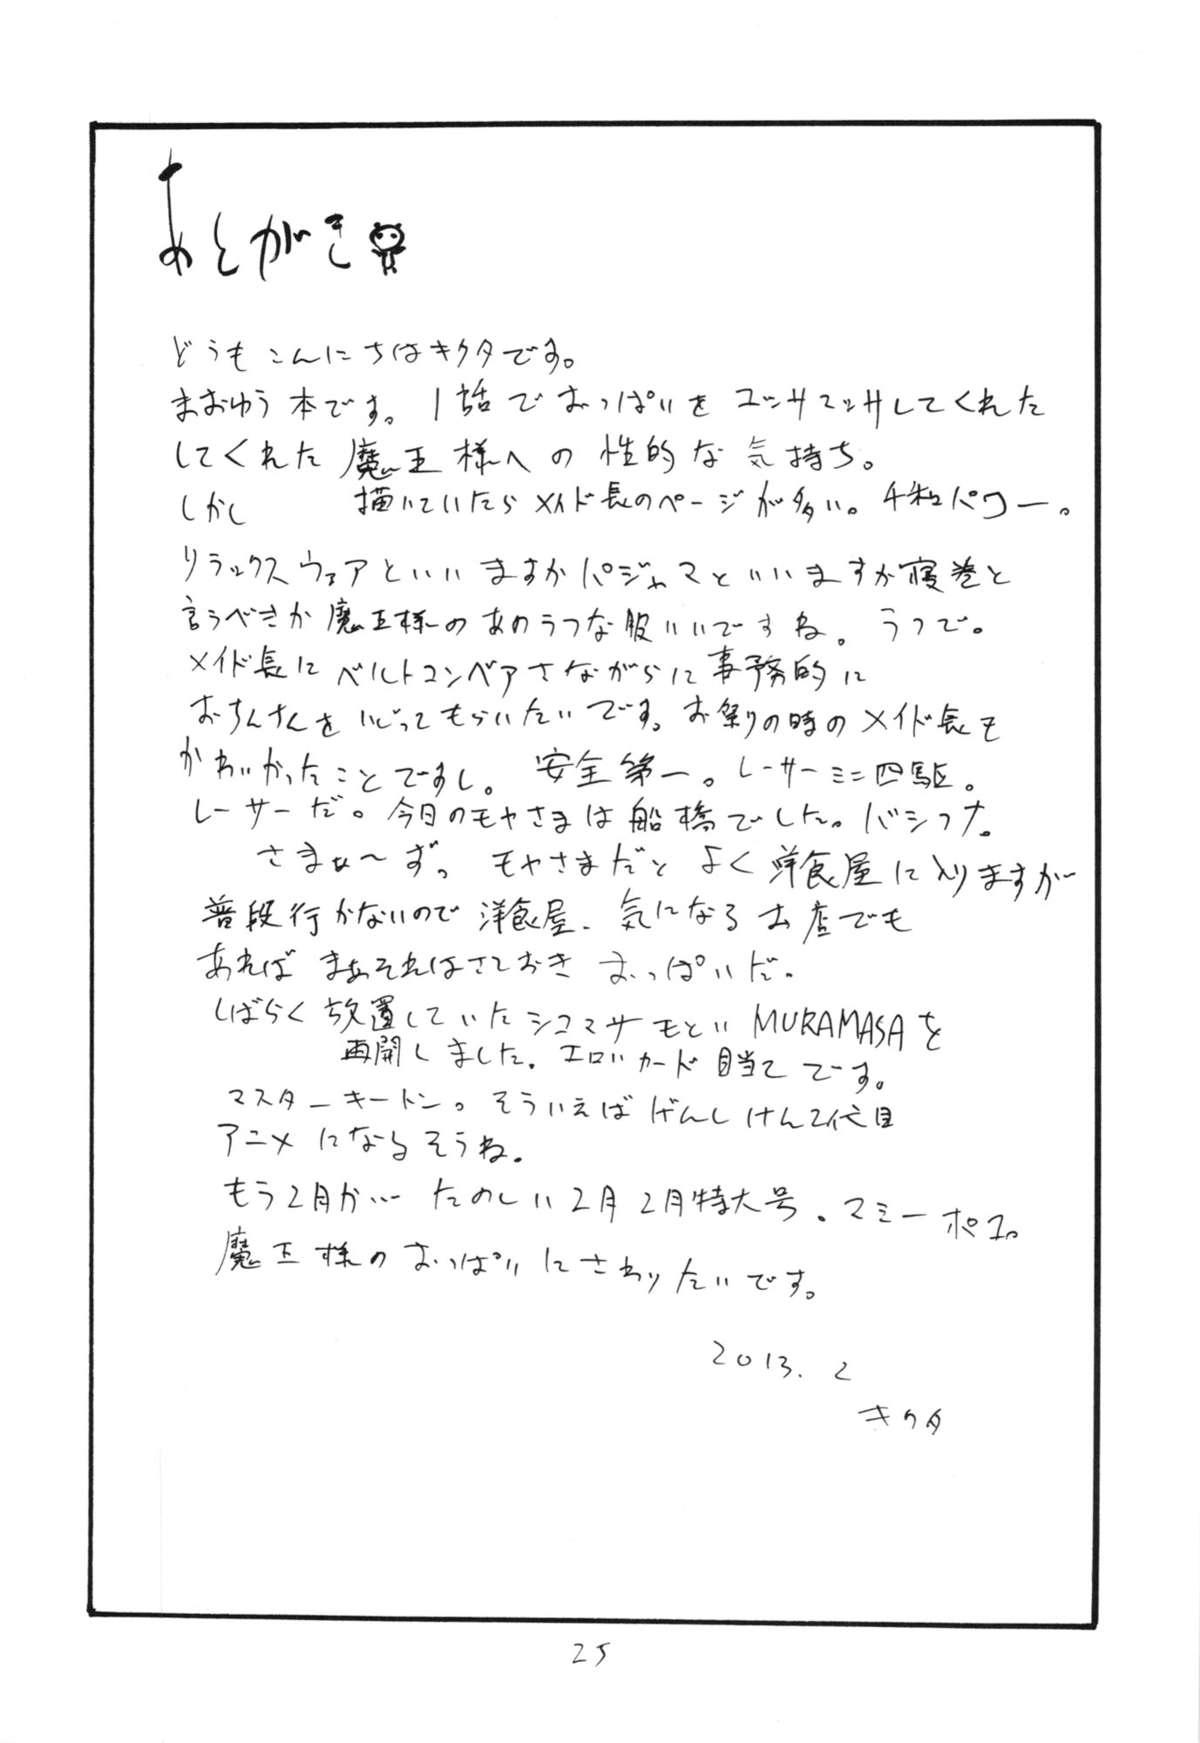 あとがき
どうもこんにちはキクタです。
まおゆう本です。1話でおっぱいをユッサユッサしてくれた
してくれた魔王様への性的な気持ち。
しかし 描いていたらメイド長のページが多い。千和パワー。
リラックスウェアといいますかパジャマといいますか寝巻と
言うべきか魔王様のあのうつな服いいですね。うつで。
メイド長にベルトコンベアさながらに事務的に
おちんちんをいじってもらいたいです。お祭りの時のメイド長も
かわいかったことですし。安全第一。レーサーミニ四駆。
レーサーだ。今日のモヤさまは船橋でした。バシフナ。
さまぁ〜ず。モヤさまだとよく洋食屋に入りますが
普段行かないので洋食屋、気になるお店でも
あれば まぁそれはさておき おっぱいだ。
しばらく放置していたシコマサもとい MURAMASAを
再開しました。エロいカード目当てです。
マスターキートン。そういえばげんしけん2代目
アニメになるそうね。
もう2月か… たのしい2月 2月特大号。マミーポコ。
魔王様のおっぱいにさわりたいです。
2013. 2
キクタ
25